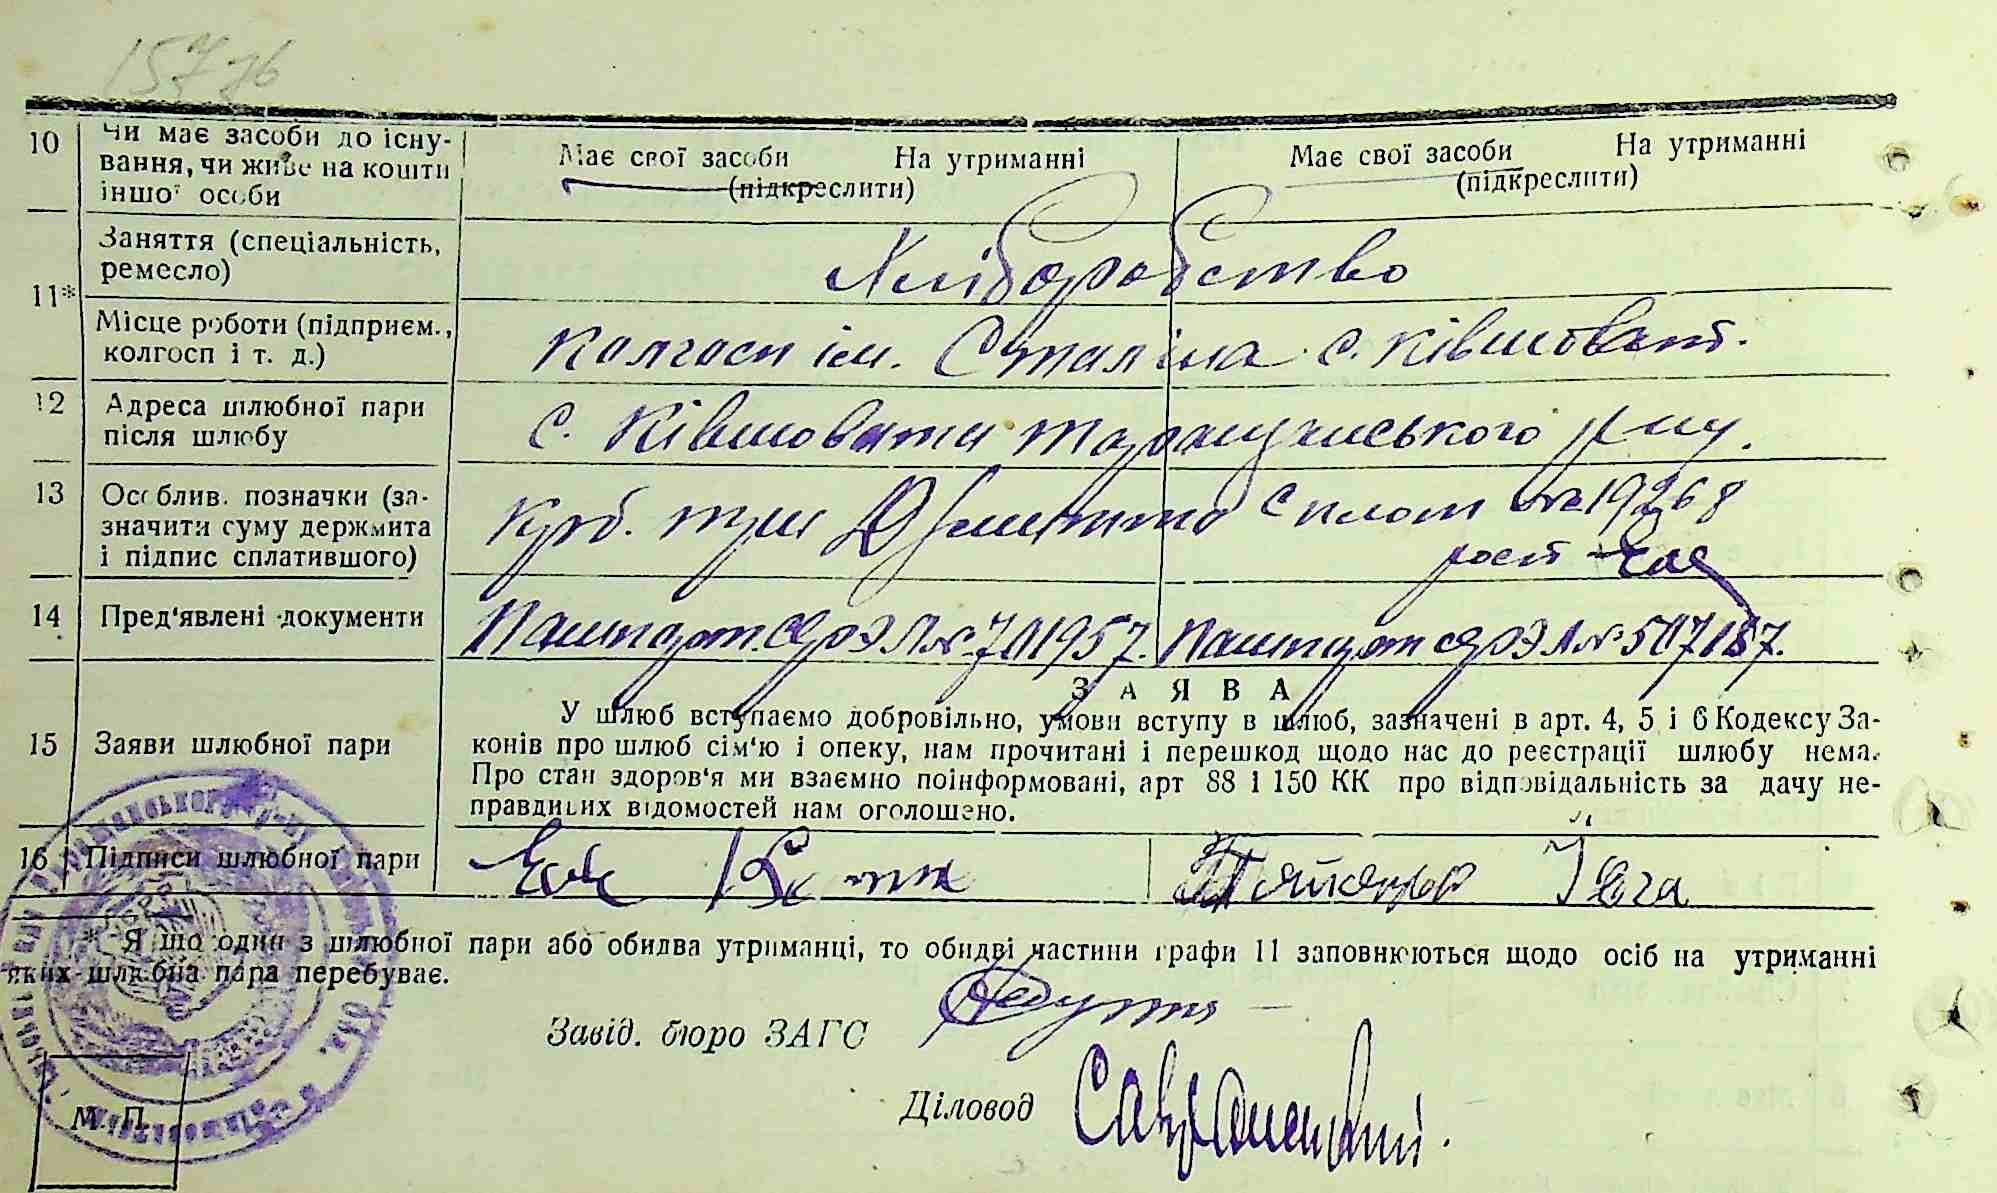 10 Чи має засоби до існу-
вання, чи живе на кошти
іншої особи
Має свої засоби На утриманні
(підкреслити)
Має свої засоби На утриманні
(підкреслити)
11* Заняття (спеціальність,
ремесло)
Хліборобство
Місце роботи (підприєм.,
колгосп і т. д.)
колгосп ім. Сталіна с. Ківшоват.
12 Адреса шлюбної пари
після шлюбу
с. Ківшовати таращанського р-ну.
13 Особлив. позначки (за-
значити суму держмита
і підпис сплатившого)
Крб. три сплат 19268
14 Пред'явлені документи
Пашпорт 701957. Пашпорт 507187.
З А Я В А
15 Заяви шлюбної пари
У шлюб вступаємо добровільно, умови вступу в шлюб, зазначені в арт. 4, 5 і 6 Кодексу За-
конів про шлюб сім'ю і опеку, нам прочитані і перешкод щодо нас до реєстрації шлюбу нема.
Про стан здоров'я ми взаємно поінформовані, арт 88 і 150 КК про відповідальність за дачу не-
правдивих відомостей нам оголошено.
16 Підписи шлюбної пари
* Якщо один з шлюбної пари або обидва утриманці, то обидві частини графи 11 заповнюються щодо осіб на утриманні
яких шлюбна пара перебуває.
Завід. бюро ЗАГС
Діловод
М. П.